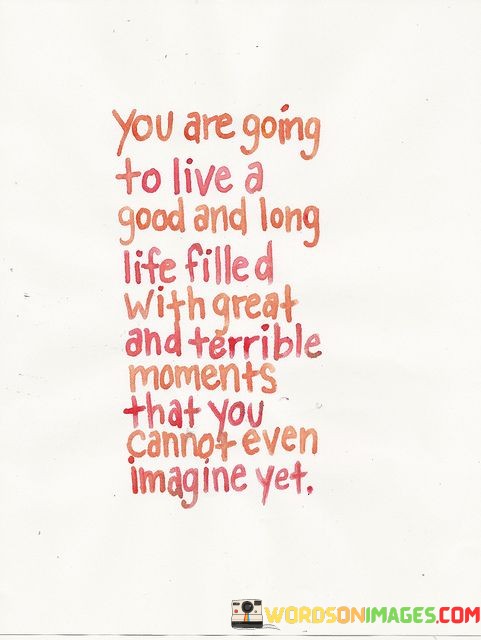 you are going
to live a
good and long
life filled
with great
and terrible
moments
that you
cannot even
imagine yet.
WORDSONIMAGES.COM